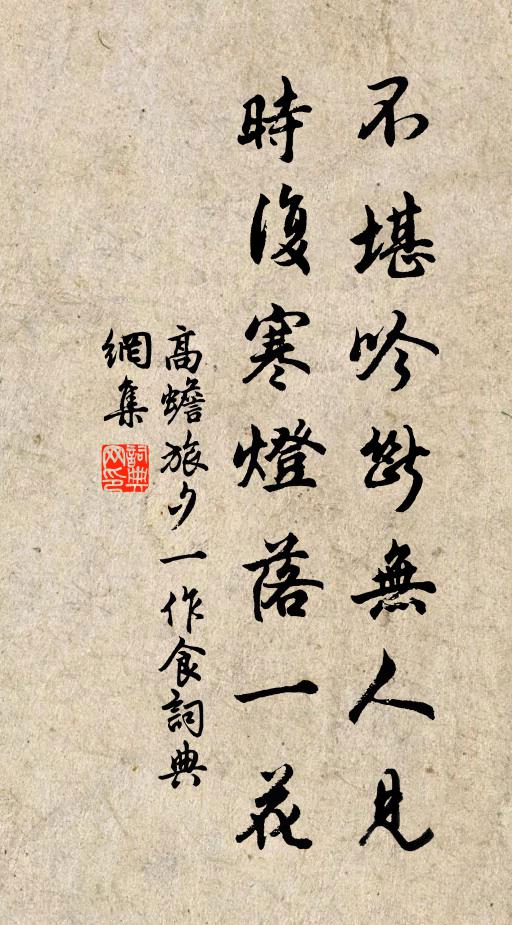 不堪吟斷無人見
時復寒燈落一花
高蟾旅夕一作食詞典
網集
詞典網印